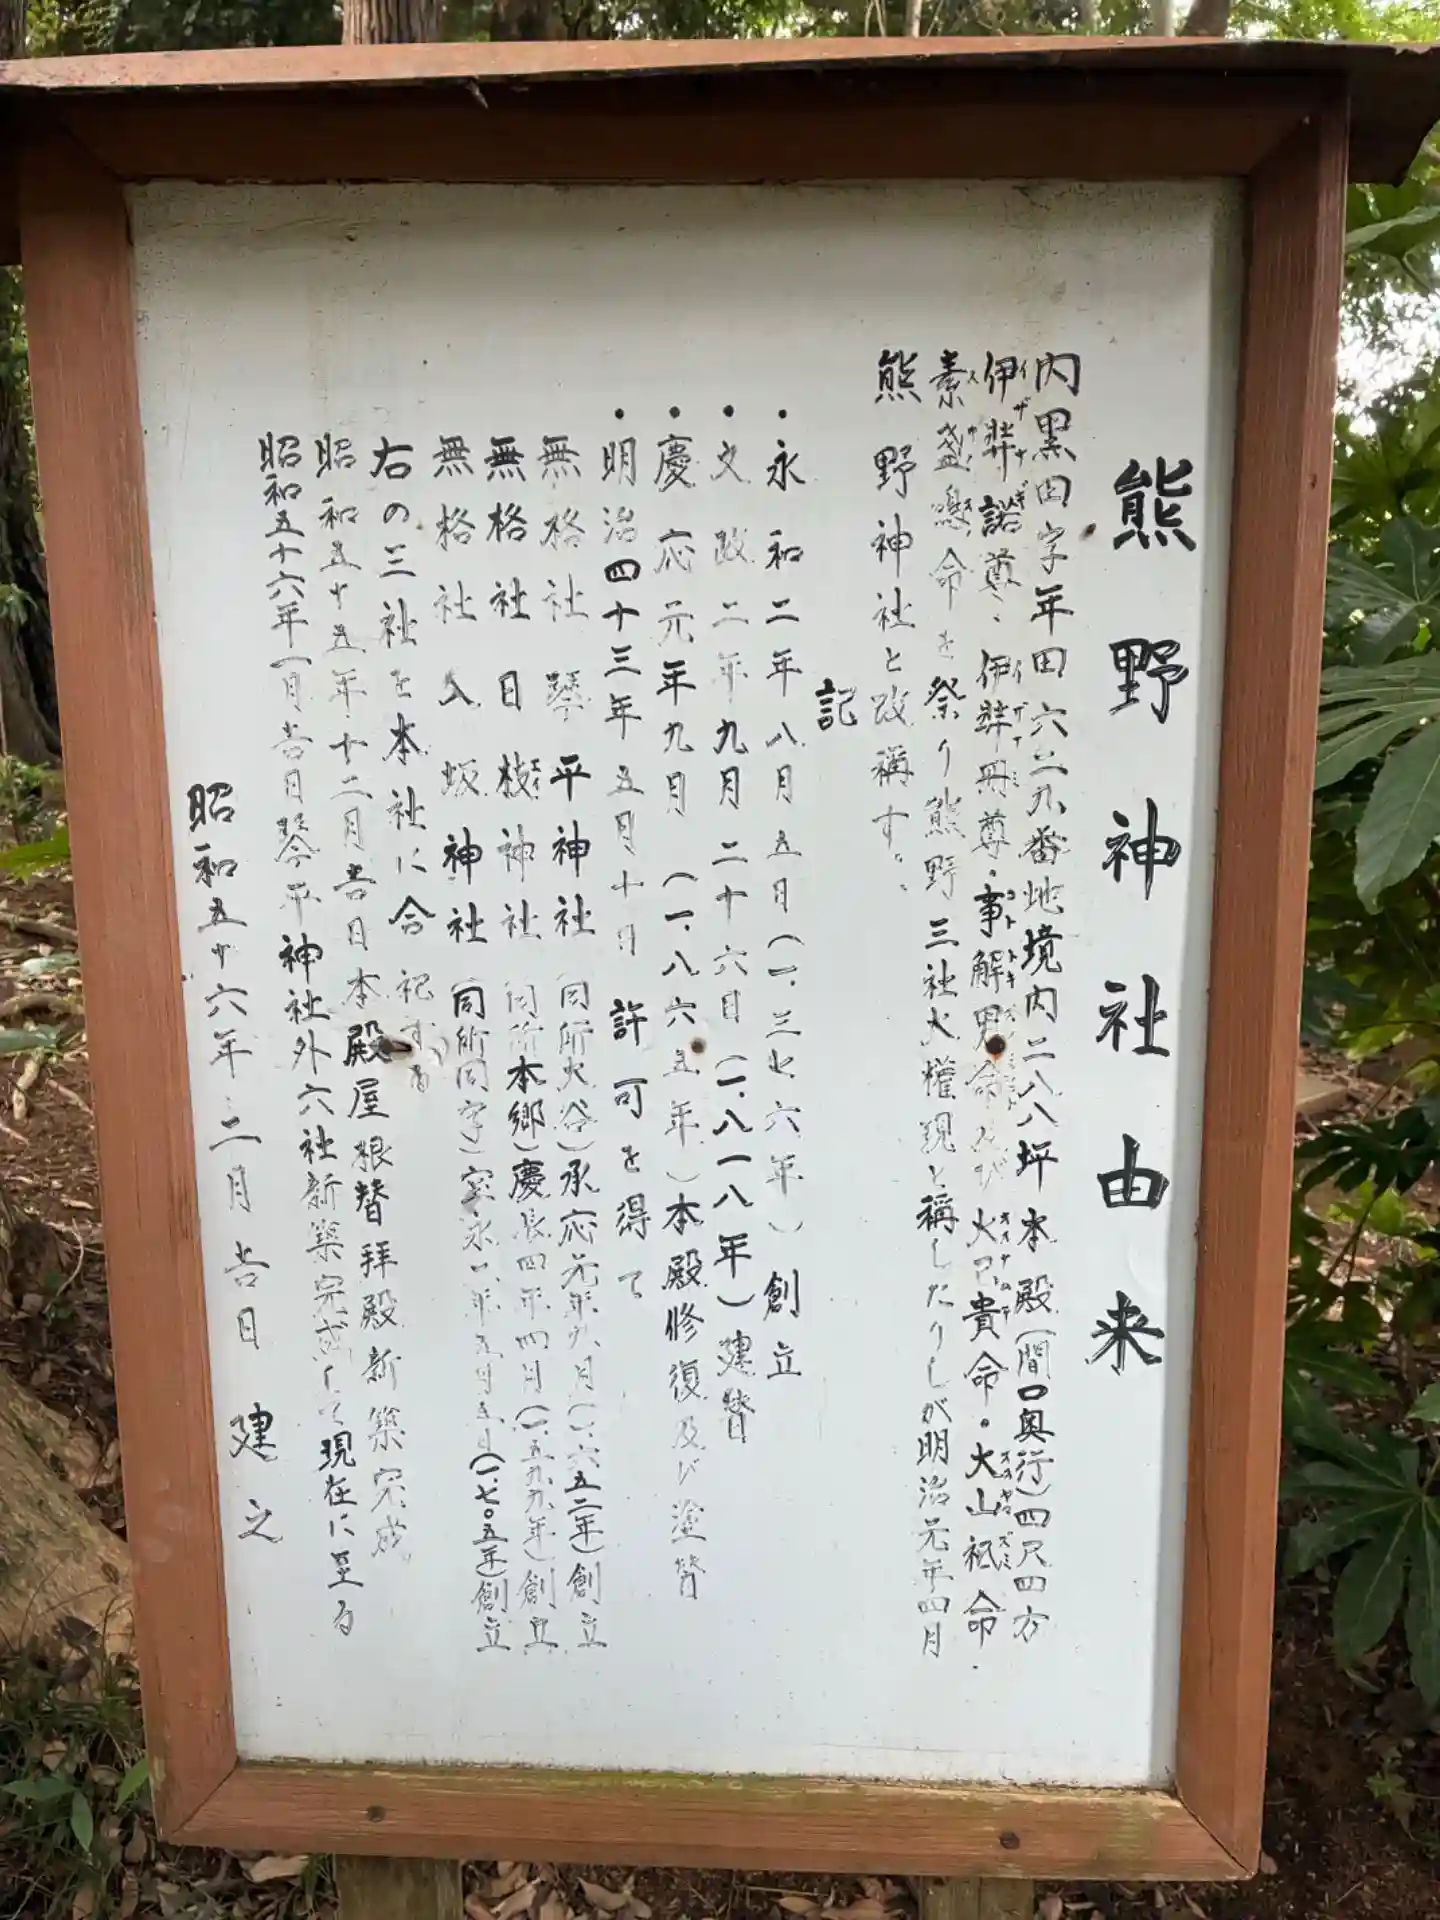 熊野神社由来
内黒田字年田六二九番地境内二八八坪 本殿(間口奥行)四尺四方
伊弉諾尊・伊弉冊尊・事解男命及び大己貴命・大山祇命
イザナギ イザナミ コトトキ オオナムチ オオヤマズミ
素盞嗚命を祭り熊野三社大權現と稱したりしが明治元年四月
スサノオ
熊野神社と改稱す。
記
・永和二年八月五日(一、三七六年)創立
・文政二年九月二十六日(一、八一八年)建替
・慶応元年九月(一、八六五年)本殿修復及び塗替
・明治四十三年五月十日許可を得て
無格社 琴平神社 同所大谷)承応元年六月(一、六五二年)創立
無格社 日枝神社 同所本郷)慶長四年四月(一、五九九年)創立
無格社 八坂神社 同所同字)宝永二年五月五日(一、七〇五年)創立
右の三社を本社に合祀する
昭和五十五年十二月吉日本殿屋根替拝殿新築完成
昭和五十六年一月吉日琴平神社外六社新築完成して現在に至る
昭和五十六年二月吉日 建之